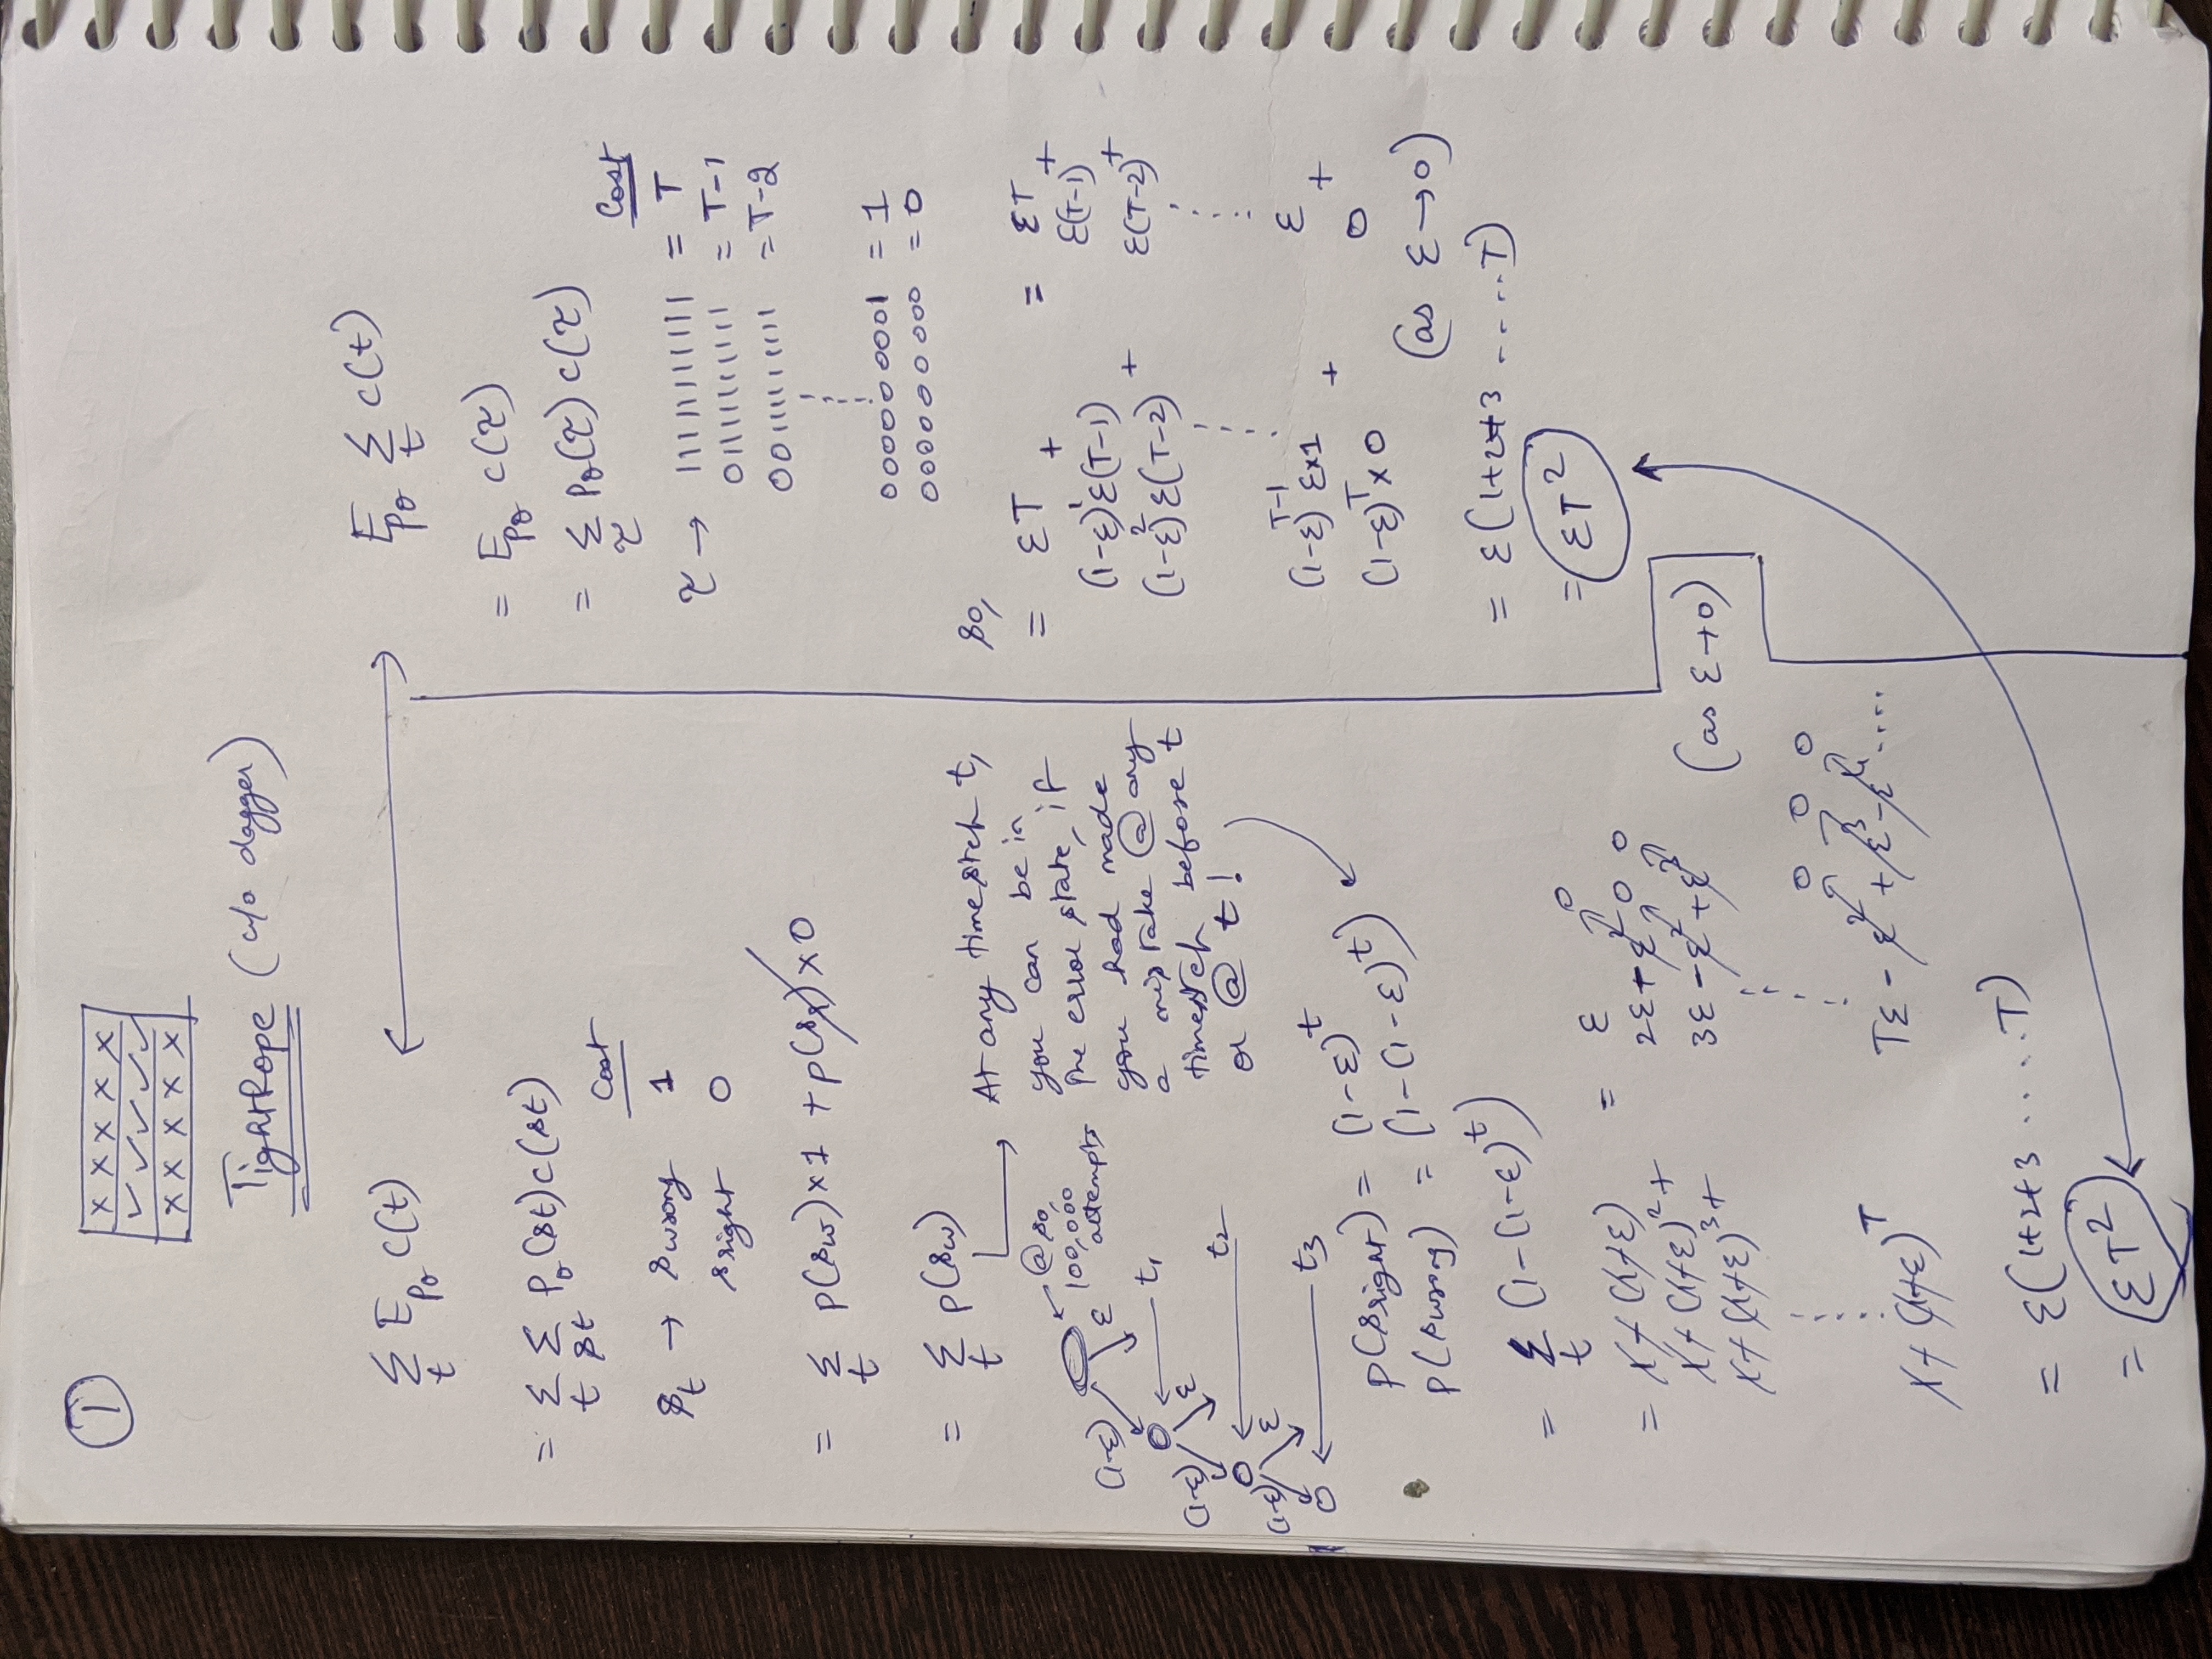 1
x x x x x
✓ ✓ ✓ ✓ ✓
x x x x x
TightRope (w/o dagger)
Σ_t E_{pθ} c(t)
= Σ_t Σ_{st} Pθ(st) c(st)
Cost
s_t → s wrong 1
s right 0
= Σ_t p(s_w)×1 + p(s_r)×0
= Σ_t p(s_w)
At any timestep t,
you can be in
the error state, if
you had made
a mistake @ any
timestep before t
or @ t!
@ s0,
100,000
attempts
(1-ε) ε
t₁
(1-ε) ε
t₂
(1-ε) ε
t₃
p(s right) = (1-ε)^t
p(s wrong) = (1-(1-ε)^t)
= Σ_t (1-(1-ε)^t)
= 1+(1+ε)
1+(1+ε)²+
1+(1+ε)³+
1+(1+ε)^T
= ε
2ε+ε² 0
3ε-ε²+ε³ 0 0
(as ε→0)
Tε - ε² + ε³ - ε⁴ .... 0 0 0
= ε(1+2+3 ..... T)
= εT²
E_{pθ} Σ_t c(t)
= E_{pθ} c(τ)
= Σ_τ pθ(τ) c(τ)
Cost
τ → 11111111111 = T
01111111111 = T-1
00111111111 = T-2
0000000001 = 1
0000000000 = 0
so,
= εT +
(1-ε)¹ε(T-1)
(1-ε)²ε(T-2) +
(1-ε)^{T-1} ε×1 +
(1-ε)^T × 0
= εT +
ε(T-1) +
ε(T-2) +
ε +
0
(as ε→0)
= ε(1+2+3 .....T)
= εT²